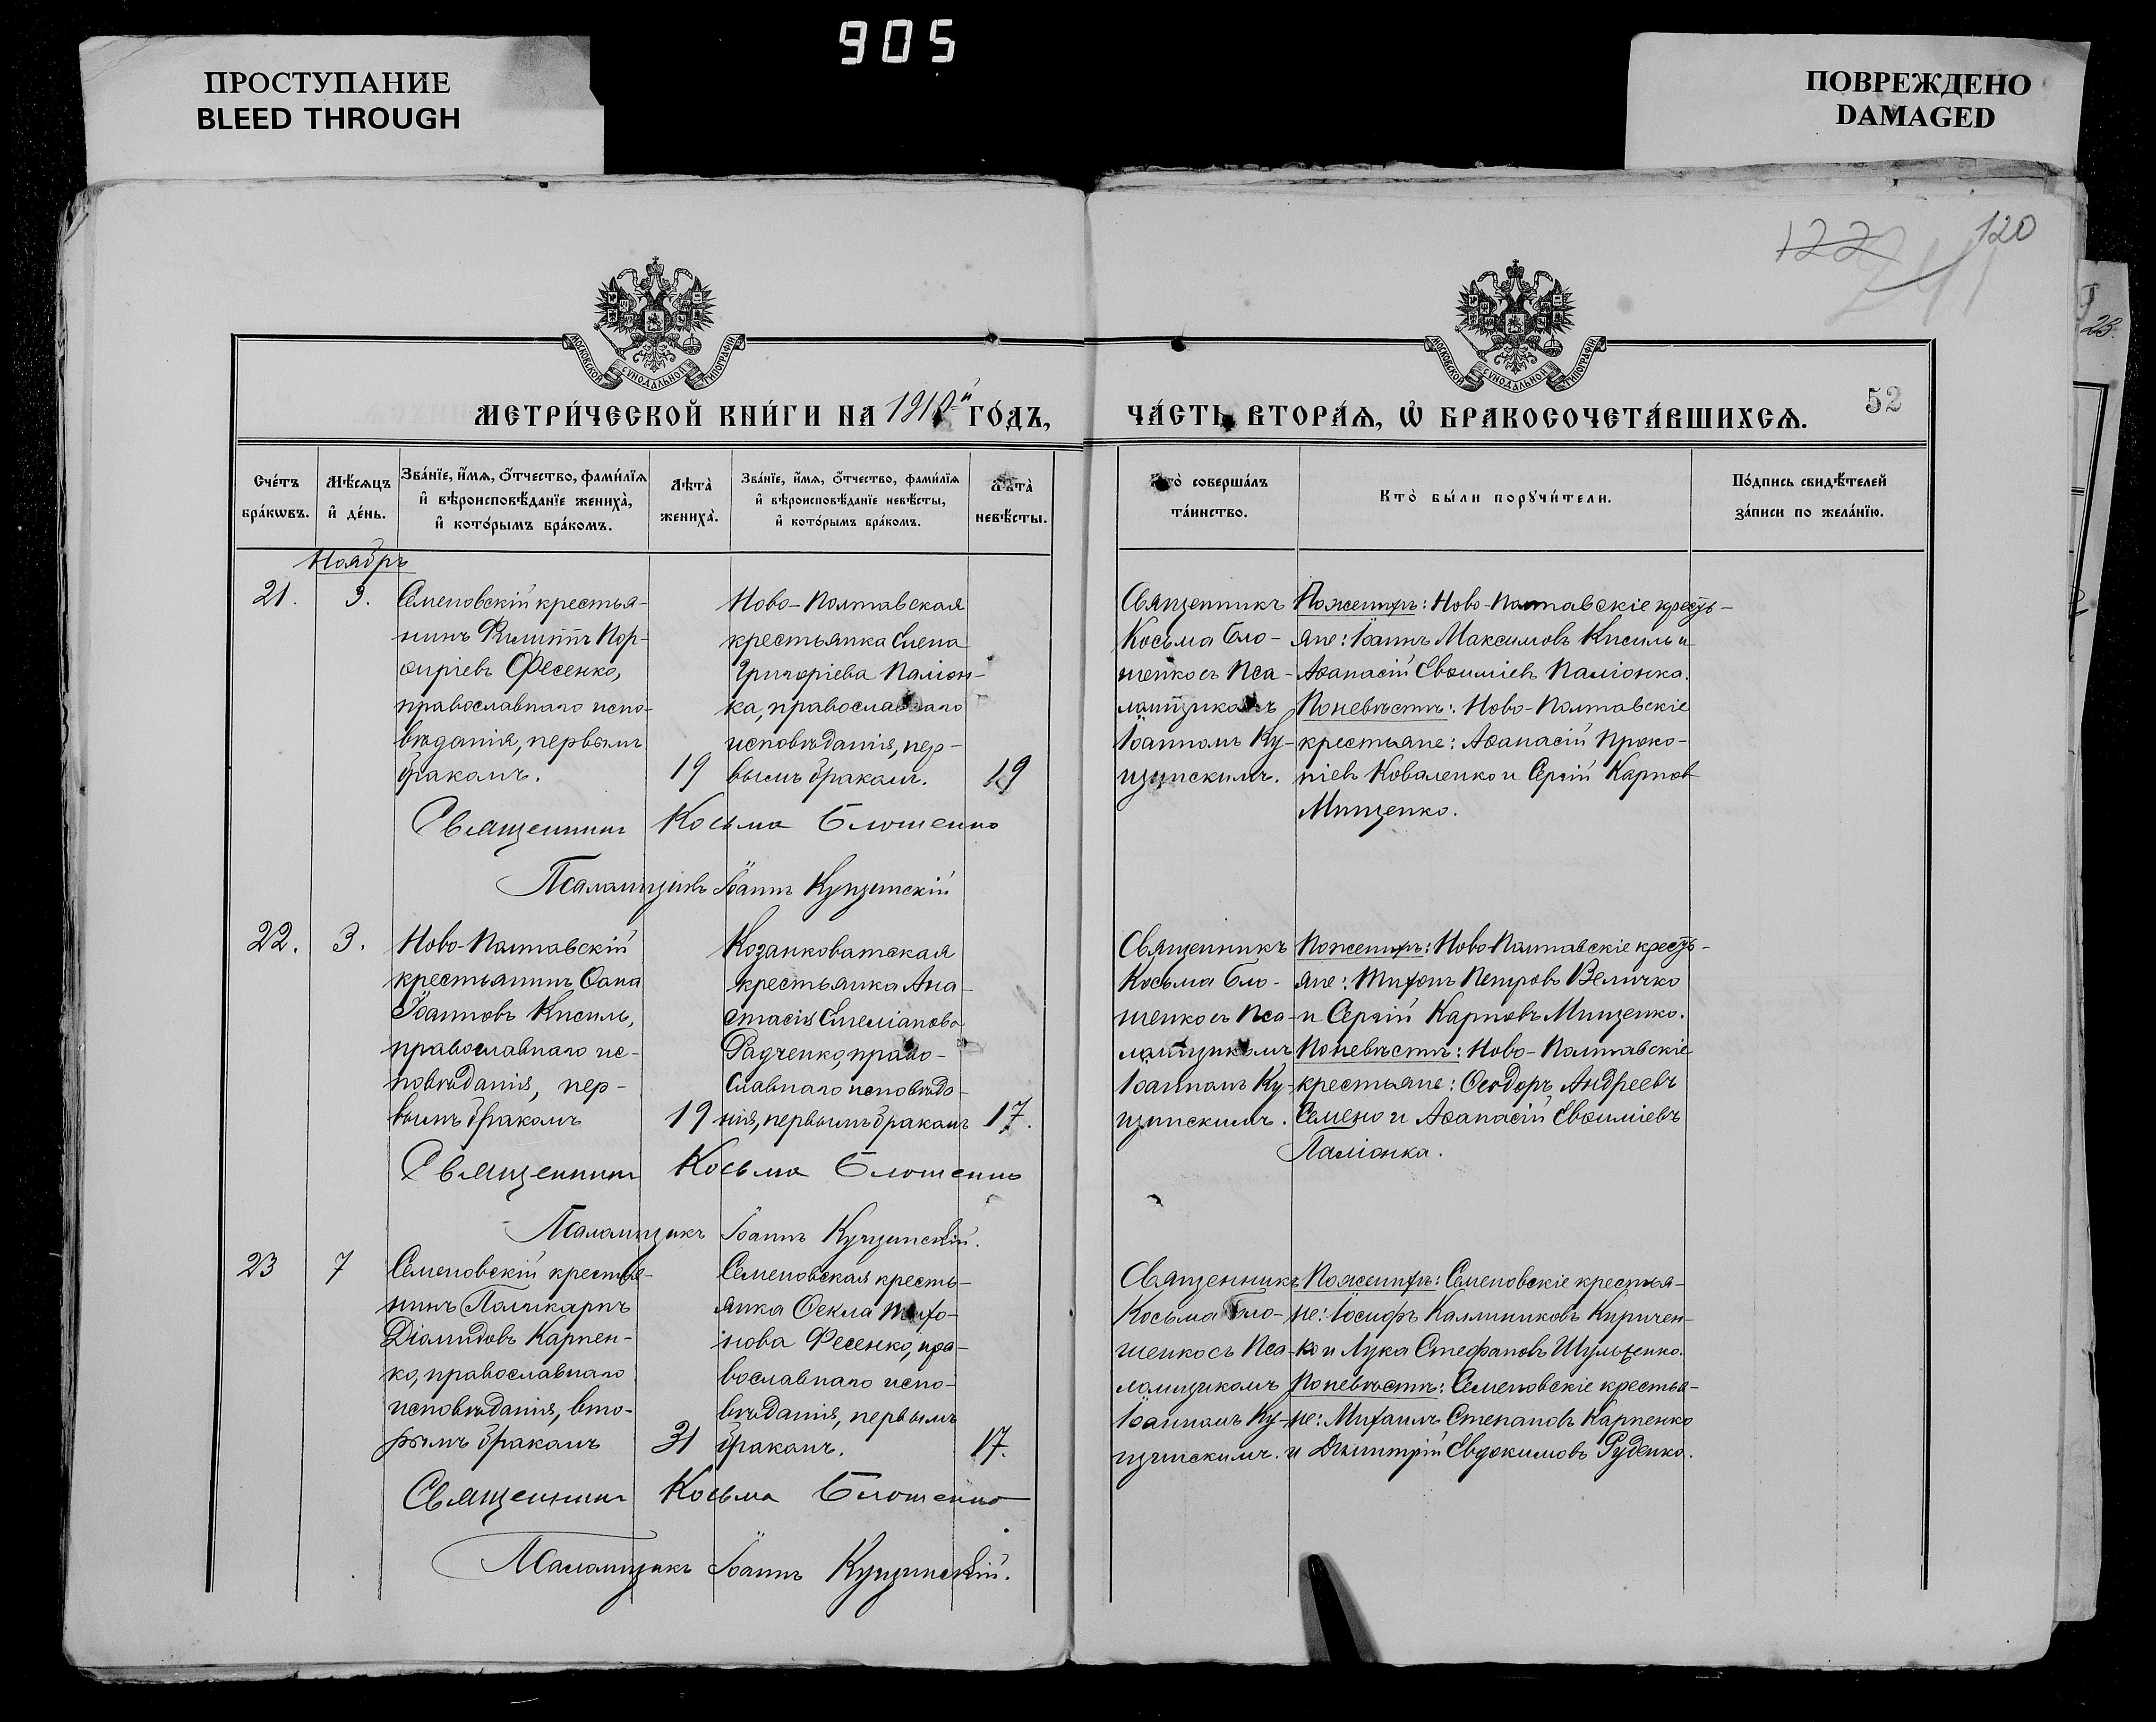 905
ПРОСТУПАНИЕ
BLEED THROUGH
ПОВРЕЖДЕНО
DAMAGED
122
120
241
23.
МОСКОВСКОЙ СѴНОДАЛЬНОЙ ТИПОГРАФІИ
МОСКОВСКОЙ СѴНОДАЛЬНОЙ ТИПОГРАФІИ
52
МЕТРИ́ЧЕСКОЙ КНИ́ГИ НА 1910й ГО́ДЪ,
ЧА́СТЬ ВТОРА́Ѧ, Ѿ БРАКОСОЧЕТА́ВШИХСѦ.
Сче́тъ бра́кѡвъ.
Мѣ́сѧцъ и҆ де́нь.
Зва́нїе, и҆́мѧ, ѻ҆́тчество, фами́лїѧ
и҆ вѣроисповѣ́данїе жениха̀,
и҆ кото́рымъ бра́комъ.
Лѣта̀ жениха̀.
Зва́нїе, и҆́мѧ, ѻ҆́тчество, фами́лїѧ
и҆ вѣроисповѣ́данїе невѣ́сты,
и҆ кото́рымъ бра́комъ.
Лѣта̀ невѣ́сты.
Кто̀ соверша́лъ
та́инство.
Кто̀ бы́ли порꙋчи́тели.
По́дпись свидѣ́телей
за́писи по жела́нїю.
Ноябрь
21.
3.
Семеновскій крестья-
нинъ Филиппъ Пор-
фиріевъ Фесенко,
православнаго испо-
вѣданія, первымъ
бракомъ.
19
Ново-Полтавская
крестьянка Елена
Григоріева Паліон-
ка, православнаго
исповѣданія, пер-
вымъ бракомъ.
19
Священникъ
Косьма Бло-
шенко съ Пса-
ломщикомъ
Іоанномъ Ку-
щинскимъ.
По женихѣ: Ново-Полтавскіе кресть-
яне: Іоаннъ Максимовъ Кисиль и
Аѳанасій Евѳиміевъ Паліонка.
По невѣстѣ: Ново-Полтавскіе
крестьяне: Аѳанасій Проко-
піевъ Коваленко и Сергій Карповъ
Мищенко.
Священникъ Косьма Блошенко
Псаломщикъ Іоаннъ Кущинскій
22.
3.
Ново-Полтавскій
крестьянинъ Ѳома
Іоанновъ Кисиль,
православнаго ис-
повѣданія, пер-
вымъ бракомъ
19
Козанковатская
крестьянка Ана-
стасія Емеліанова
Радченко, право-
славнаго исповѣда-
нія, первымъ бракомъ
17.
Священникъ
Косьма Бло-
шенко съ Пса-
ломщикомъ
Іоанномъ Ку-
щинскимъ.
По женихѣ: Ново Полтавскіе кресть-
яне: Тихонъ Петровъ Величко
и Сергій Карповъ Мищенко.
По невѣстѣ: Ново-Полтавскіе
крестьяне: Ѳеодоръ Андреевъ
Семено и Аѳанасій Евѳиміевъ
Паліонка.
Священникъ Косьма Блошенко
Псаломщикъ Іоаннъ Кущинскій.
23
7
Семеновскій крестья-
нинъ Поликарпъ
Діомидовъ Карпен-
ко, православнаго
исповѣданія, вто-
рымъ бракомъ
31
Семеновская кресть-
янка Ѳекла Тихо-
нова Фесенко, пра-
вославнаго испо-
вѣданія, первымъ
бракомъ.
17.
Священникъ
Косьма Бло-
шенко съ Пса-
ломщикомъ
Іоанномъ Ку-
щинскимъ.
По женихѣ: Семеновскіе крестья-
не: Іосифъ Каллиниковъ Киричен-
ко и Лука Стефановъ Шульженко.
По невѣстѣ: Семеновскіе крестья-
не: Михаилъ Степановъ Карпенко
и Димитрій Евдокимовъ Руденко.
Священникъ Косьма Блошенко
Псаломщикъ Іоаннъ Кущинскій.